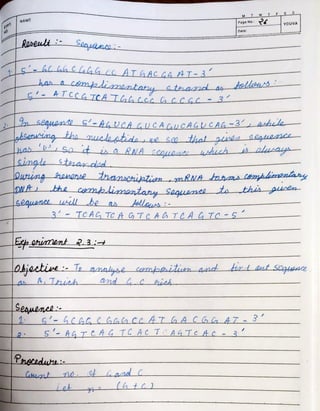 NAME:
M T W T F S S
Page No.: 26
YOUVA
Date:
Result :- Sequence:-
1. 5'- GC GG C GGG CC AT GAC GG AT - 3'
has a complimentary strand as follows :
5' - ATCCG TCA TGG CCC G CC GC - 3'
2. In sequence 5'-AGUCA GUCAGUCAGUCAG-3', while
observing the nucleotide, we see that given sequence
has 'U', so it is a RNA sequence which is always
single stranded.
During reverse transcription, mRNA forms complimentary
DNA, the complimentary sequence to this given
sequence will be as follows :-
3' - TCAG TCA G TC AG TC A G TC - 5'
Experiment 2.3 :-
Objective :- To analyse composition and find out sequence
as A.T rich and G.C rich
Sequence :-
1. 5'- GCGG C GGG CC AT G A C GG AT - 3'
2. 5'- AG T C A G T C AC T AG TC AC - 3'
Procedure :-
Count no. of G and C
(G + C)